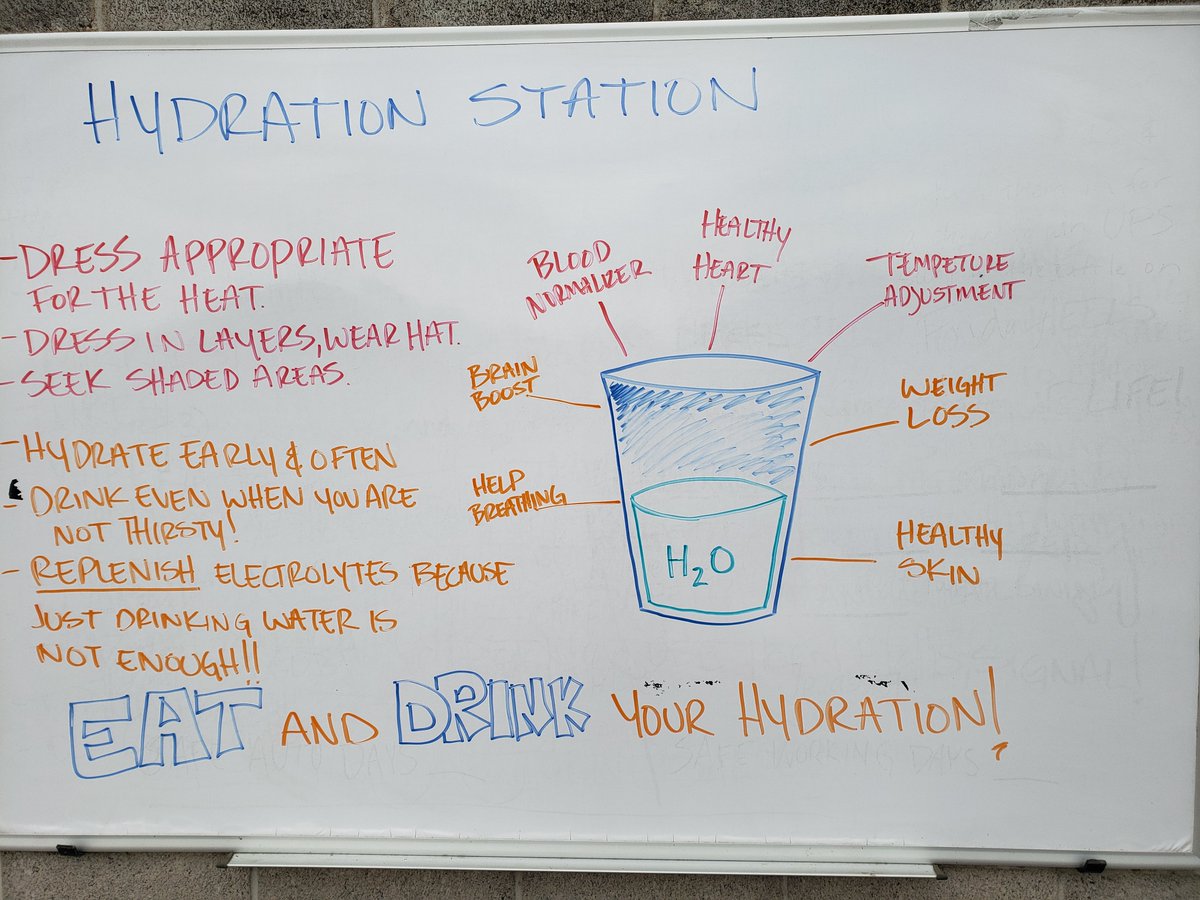 HYDRATION STATION
-DRESS APPROPRIATE
FOR THE HEAT.
-DRESS IN LAYERS, WEAR HAT.
-SEEK SHADED AREAS.
-HYDRATE EARLY & OFTEN
- DRINK EVEN WHEN YOU ARE
NOT THIRSTY!
- REPLENISH ELECTROLYTES BECAUSE
JUST DRINKING WATER IS
NOT ENOUGH!!
BLOOD
NORMALIZER
HEALTHY
HEART
TEMPETURE
ADJUSTMENT
BRAIN
BOOST
WEIGHT
LOSS
HELP
BREATHING
HEALTHY
SKIN
H₂O
EAT AND DRINK YOUR HYDRATION!
SAFE WORKING DAYS